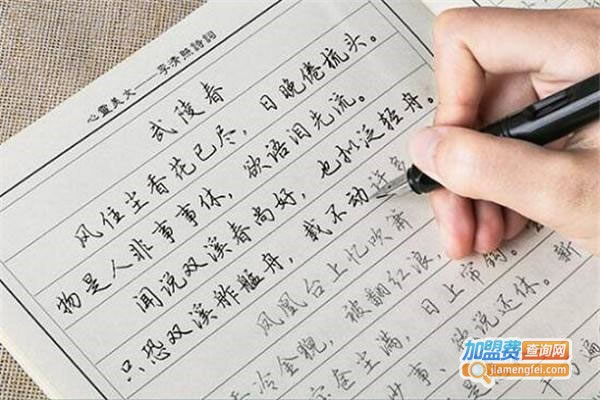 心靈美文——李清照詩詞
武陵春
风住尘香花已尽，日晚倦梳头。
物是人非事事休，欲语泪先流。
闻说双溪春尚好，也拟泛轻舟。
只恐双溪舴艋舟，载不动许多
凤凰台上忆吹箫
冷金猊，被翻红浪，
奁尘满，日上帘钩。
事、欲说还休。新
加盟费查询网
jiamengfei.com